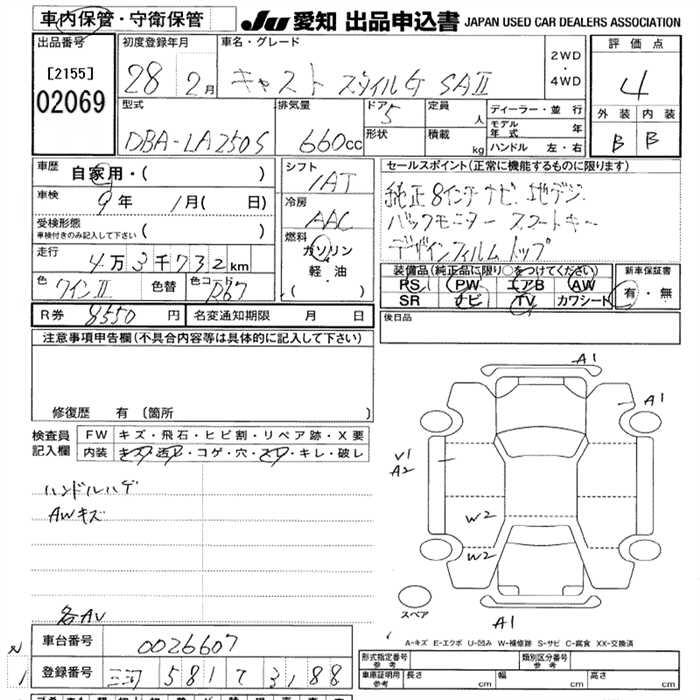 車内保管・守衛保管
JU 愛知 出品申込書 JAPAN USED CAR DEALERS ASSOCIATION
出品番号 初度登録年月 車名・グレード 評価点
[2155] 28 2月 キャスト スタイルG SAⅡ 2WD・4WD 4
02069
型式 排気量 ドア 定員 ディーラー・並行 外装 内装
DBA-LA250S 660cc 5 人 モデル年式 年 B B
形状 積載 kg ハンドル 左・右
車歴 自家用・( ) シフト 1AT セールスポイント(正常に機能するものに限ります)
車検 9年 1月( 日) 冷房 AAC 純正8インチナビ 地デジ
受検形態 車検付きのみ記入して下さい ( ) 燃料 バックモニター スマートキー
走行 4万3千732km ガソリン デザインフィルムトップ
軽油 装備品(純正品に限り○をつけてください) 新車保証書
色 ワインⅡ 色替 色コード R67 ( ) PS PW エアB AW 有・無
SR ナビ TV カワシート
R券 8550円 名変通知期限 月 日 後日品
注意事項申告欄(不具合内容等は具体的に記入して下さい)
修復歴 有 〔箇所 〕
検査員記入欄 FW キズ・飛石・ヒビ割・リペア跡・X要
内装 キズ・汚レ・コゲ・穴・スレ・キレ・破レ
ハンドルハゲ
AWキズ
A1
A1
V1
A2
W2
W2
スペア
A1
A-キズ E-エクボ U-凹み W-補修跡 S-サビ C-腐食 XX-交換済
車台番号 0026607
登録番号 三河 581 て 3188
形式指定番号 参考 類別区分番号 参考
車庫証明用 参考 長さ cm 幅 cm 高さ cm